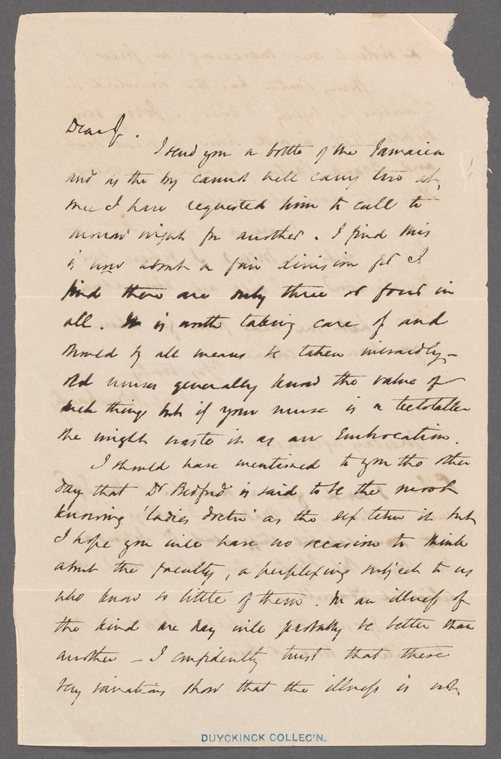 Dear J.
I send you a bottle of the Jamaica
and as the boy cannot well carry two at
once I have requested him to call to
morrow night for another. I find this
is now about a fair division for I
find there are only three or four in
all. It is worth taking care of and
should by all means be taken inwardly –
old nurses generally know the value of
such things but if your nurse is a teetotaller
she might waste it as an Embrocation.
I should have mentioned to you the other
day that Dr Bedford is said to be the most
knowing 'ladies doctor' as the sex term it but
I hope you will have no occasion to think
about the faculty, a perplexing subject to us
who know so little of them. In an illness of
the kind one day will probably be better than
another – I confidently trust that these
very variations show that the illness is only
DUYCKINCK COLLEC'N.